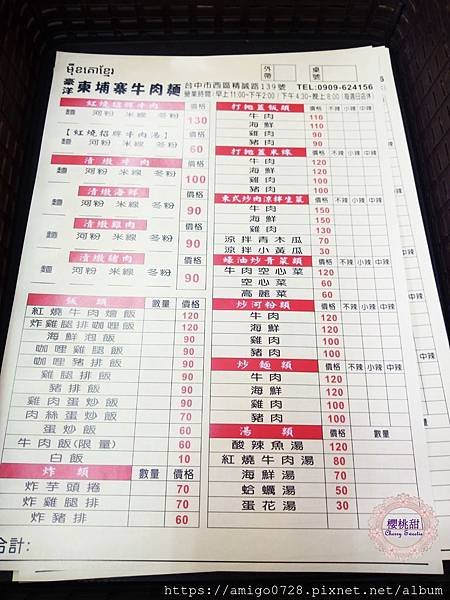 មីខគោខ្មែរ
豪洋 柬埔寨牛肉麵
外帶
桌號
台中市西區精誠路139號 TEL:0909-624156
營業時間:早上11:00~下午2:00 / 下午4:30~晚上8:00
紅燒招牌牛肉 價格
麵 河粉 米線 冬粉 130
【紅燒招牌牛肉湯】 價格
麵 河粉 米線 冬粉 60
清燉牛肉 價格
麵 河粉 米線 冬粉 100
清燉海鮮 價格
麵 河粉 米線 冬粉 90
清燉雞肉 價格
麵 河粉 米線 冬粉 90
清燉豬肉 價格
麵 河粉 米線 冬粉 90
飯類 數量 價格
紅燒牛肉燴飯 120
炸雞腿排咖哩飯 120
海鮮泡飯 90
咖哩雞腿飯 90
咖哩豬排飯 90
雞腿排飯 90
豬排飯 90
雞肉蛋炒飯 80
肉絲蛋炒飯 70
蛋炒飯 60
牛肉飯(限量) 60
白飯 10
炸類 數量 價格
炸芋頭捲 70
炸雞腿排 70
炸豬排 60
合計:
打拋蓋飯類 價格 不辣 小辣 中辣
牛肉 110
海鮮 110
雞肉 90
豬肉 90
打拋蓋米線 價格 不辣 小辣 中辣
牛肉 120
海鮮 120
雞肉 100
豬肉 100
柬式炒肉涼拌生菜 價格 不辣 小辣 中辣
牛肉 150
海鮮 150
雞肉 130
涼拌青木瓜 70
涼拌小黃瓜 30
蠔油炒青菜類 價格 不辣 小辣 中辣
牛肉空心菜 120
空心菜 60
高麗菜 60
炒河粉類 價格 不辣 小辣 中辣
牛肉 120
海鮮 120
雞肉 100
豬肉 100
炒麵類 價格 不辣 小辣 中辣
牛肉 120
海鮮 120
雞肉 100
豬肉 100
湯類 價格 數量
酸辣魚湯 120
紅燒牛肉湯 80
海鮮湯 70
蛤蠣湯 50
蛋花湯 30
中辣
中辣
中辣
櫻桃甜
Cherry Sweetie
https://amigo0728.pixnet.net/album